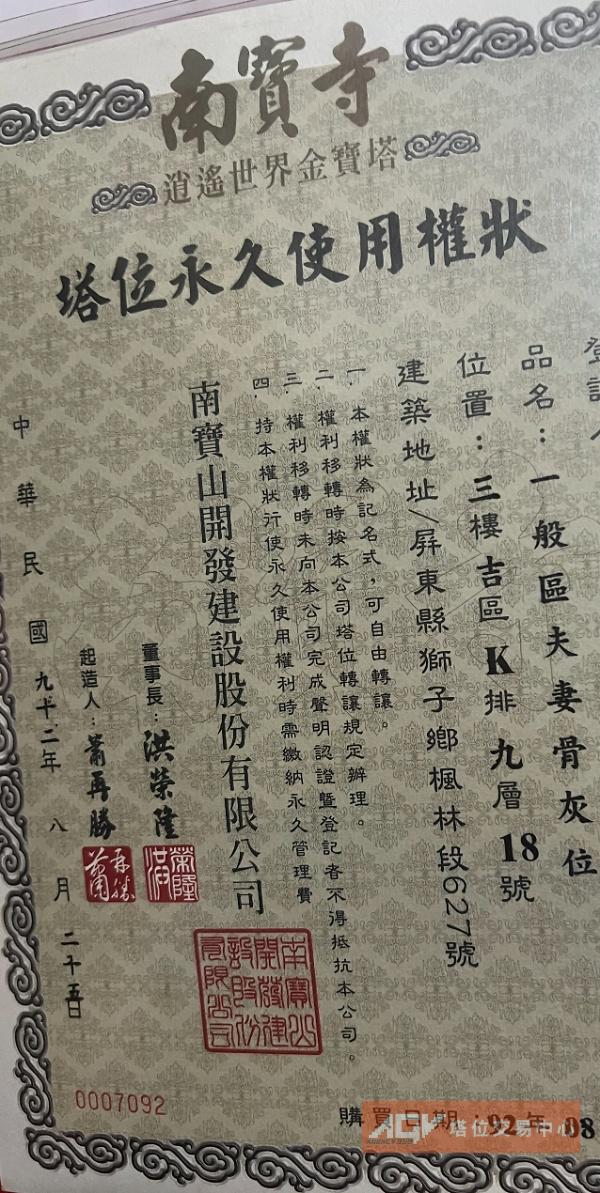 南寶寺
逍遙世界金寶塔
塔位永久使用權狀
品名：一般區夫妻骨灰位
位置：三樓吉區K排九層18號
建築地址/屏東縣獅子鄉楓林段627號
一.本權狀為記名式，可自由轉讓。
二.權利移轉時按本公司塔位轉讓規定辦理。
三.權利移轉時未向本公司完成聲明認證暨登記者不得抵抗本公司。
四.持本權狀行使永久使用權利時需繳納永久管理費
南寶山開發建設股份有限公司
南寶山開發建設股份有限公司
董事長：洪榮隆
起造人：蕭再勝
中華民國九十二年八月二十五日
0007092
購買日期：92年08
塔位交易中心